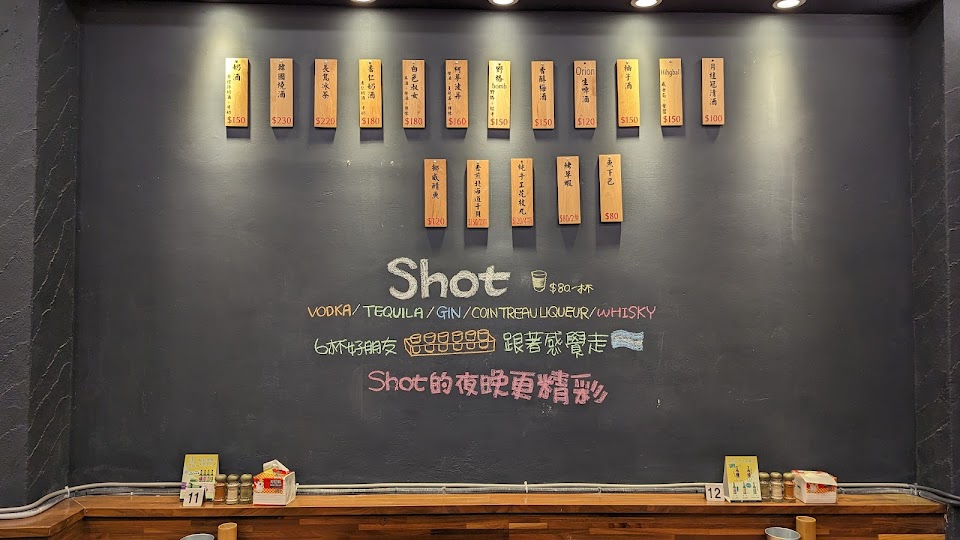 奶酒
$150
韓國燒酒
$230
長島冰茶
$220
杏仁奶酒
$180
白色淑女
$180
柯夢波丹
$160
野格bomb
$150
香醇梅酒
$150
Orion生啤酒
$120
柚子酒
$150
Hihgbal
$150
月桂冠清酒
$100
挪威鯖魚
$120
純手工花枝丸
烤草蝦
魚下巴
$80
Shot $80一杯
VODKA/TEQUILA/GIN/COINTREAU LIQUEUR/WHISKY
6杯好朋友 跟著感覺走
Shot的夜晚更精彩
11
12